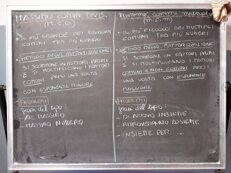 MASSIMO COMUN DIV.
(M.C.D.)
IL PIÙ GRANDE DEI DIVISORI
COMUNI TRA PIÙ NUMERI
METODO DELLA FATTORIZZAZIONE
SI SCOMPONE IN FATTORI PRIMI
E SI MOLTIPLICANO I FATTORI
COMUNI PRESI
UNA VOLTA
CON ESPONENTE MINORE
PROBLEMI
frasi del tipo:
- AL MASSIMO
- MASSIMO NUMERO
MINIMO COMUNE MULTIPLO
(m.c.m.)
IL PIÙ PICCOLO DEI MULTIPLI
COMUNI TRA PIÙ NUMERI
METODO DELLA FATTORIZZAZIONE
SI SCOMPONE IN FATTORI PRIMI
E SI MOLTIPLICANO I FATTORI
COMUNI E NON COMUNI PRESI
UNA VOLTA CON ESPONENTE
MAGGIORE
PROBLEMI
frasi del tipo:
- DI NUOVO INSIEME
- RIPASSERANNO INSIEME
- INSIEME PER ...